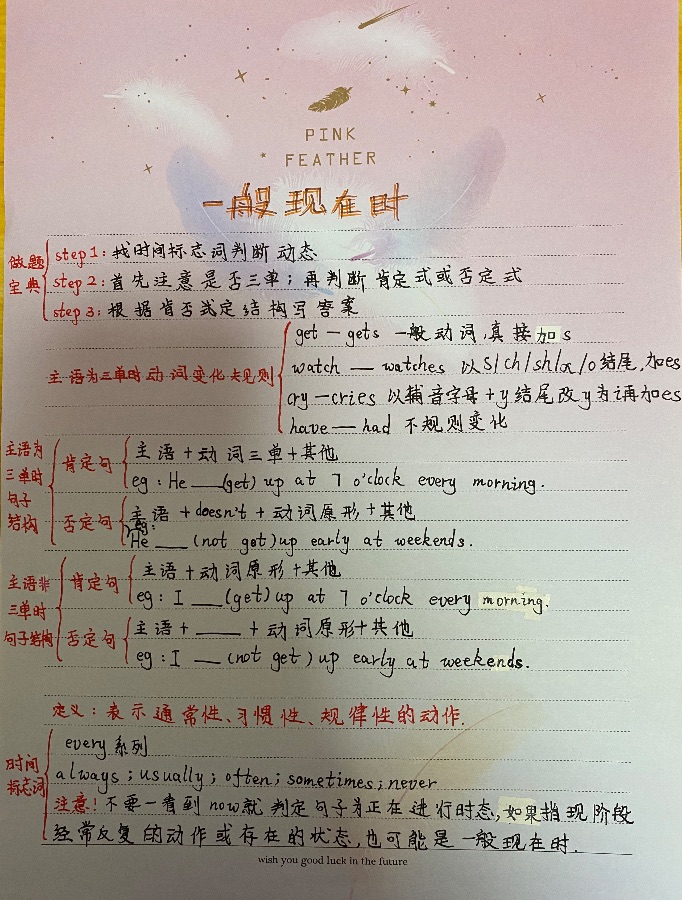 PINK
FEATHER
一般现在时
做题宝典
step1: 找时间标志词判断动态
step2: 首先注意是否三单；再判断肯定式或否定式
step3: 根据肯否式定结构写答案
主语为三单时动词变化规则
get — gets 一般动词,真接加s
watch — watches 以s/ch/sh/x/o结尾,加es
cry — cries 以辅音字母+y结尾改y为i再加es
have — had 不规则变化
主语为三单时句子结构
肯定句
主语+动词三单+其他
eg: He ___(get) up at 7 o'clock every morning.
否定句
主语 + doesn't + 动词原形+其他
eg:
He ___ (not get) up early at weekends.
主语非三单时句子结构
肯定句
主语+动词原形+其他
eg: I ___ (get) up at 7 o'clock every morning.
否定句
主语+ ____ + 动词原形+其他
eg: I ___ (not get) up early at weekends.
定义：表示通常性、习惯性、规律性的动作.
时间标志词
every系列
always; usually; often; sometimes; never
注意! 不要一看到now就判定句子为正在进行时态,如果指现阶段
经常反复的动作或存在的状态,也可能是一般现在时.
wish you good luck in the future